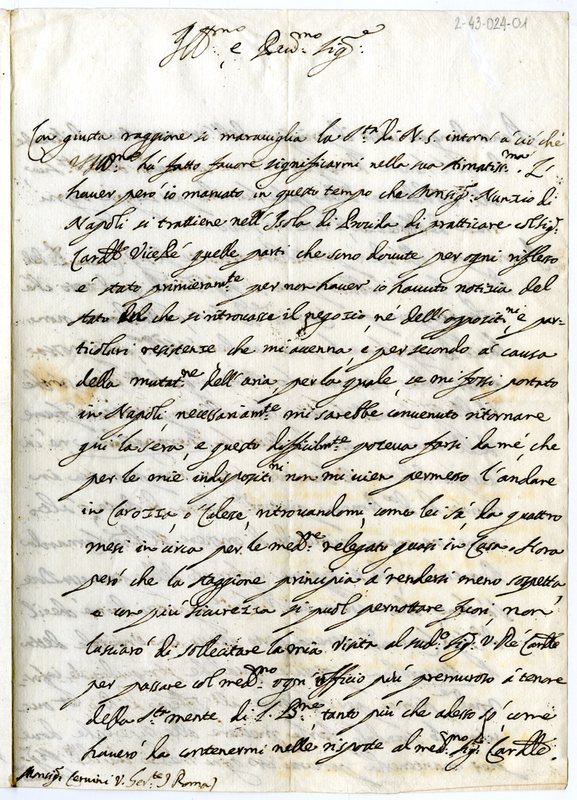 2-43-024-01
Ill.mo e Rev.mo Sig.re
Con giusta raggione si maraviglia la S.tà di N. S. intorno à ciò che
V.S. Ill.ma hà fatto favore significarmi nella sua stimatiss.ma L'
haver però io mancato in questo tempo che Monsig.r Nunzio di
Napoli si trattiene nell'Isola di Procida di pratticare col Sig.r
Card.le Vice Ré quelle parti che sono dovute per ogni riflesso
é stato primieram.te per non haver io havuto notizia del
stato che si ritrovasse il negozio, né dell'oppositi.ni, e par-
ticolari resistenze che mi avenna, e per secondo à causa
della mutat.ne dell'aria, per la quale, se mi fossi portato
in Napoli necessariam.te mi sarebbe convenuto ritornare
quì la sera, e questo difficilm.te poteva farsi da mé, che
per le mie indispositi.ni non mi vien permesso l'andare
in Carozza, o Calesse, ritrovandomi, come lei sà, da quattro
mesi in circa per le med.me relegato quasi in Casa. Hora
però che la staggione principia à rendersi meno sospetta,
e con più sicurezza si puol pernottare fuori, non
lasciarò di sollecitare la mia visita al sud.o Sig.r V. Ré Card.le
per passare col med.mo ogni officio più premuroso à tenore
della S.ta mente di S. B.ne tanto più che adesso sò come
haverò da contenermi nelle risposte al med.mo Sig.r Card.le
Monsig.r Cervini V. Ger.te (Roma)